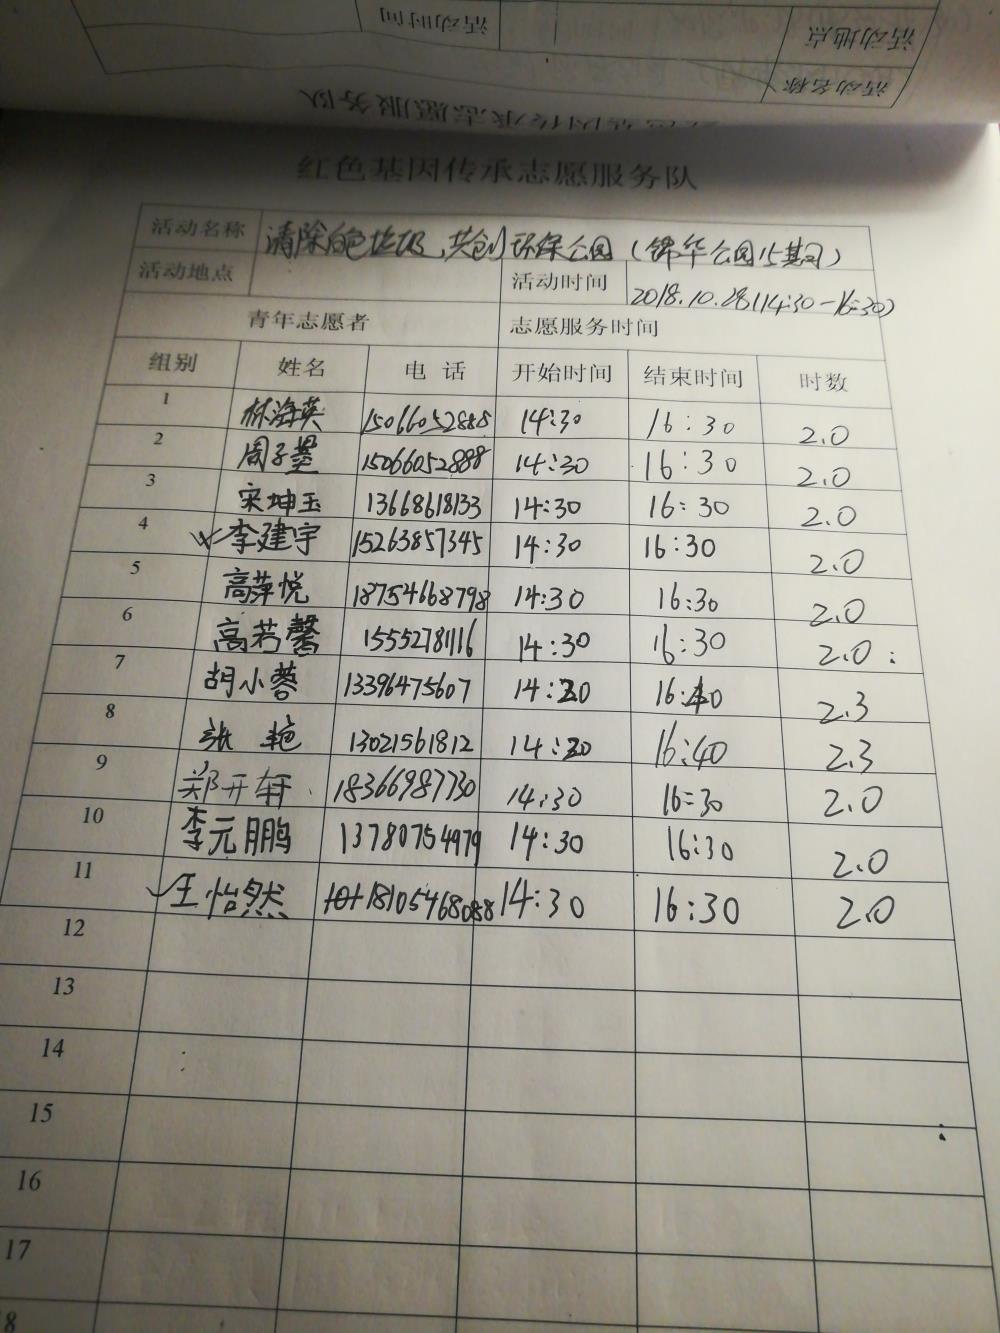 活动时间
活动地点
活动名称
红色基因传承志愿服务队
红色基因传承志愿服务队
活动名称 清除白色垃圾、共创环保公园(锦华公园15期)
活动地点 活动时间 2018.10.28(14:30-16:30)
青年志愿者 志愿服务时间
组别 姓名 电话 开始时间 结束时间 时数
1 林海英 15066052888 14:30 16:30 2.0
2 周子墨 15066052888 14:30 16:30 2.0
3 宋坤玉 13668618133 14:30 16:30 2.0
4 李建宇 15263857345 14:30 16:30 2.0
5 高萍悦 18754668798 14:30 16:30 2.0
6 高若馨 15552781116 14:30 16:30 2.0
7 胡小蓉 13396475607 14:20 16:40 2.3
8 张艳 13021561812 14:20 16:40 2.3
9 郑开轩 18366987730 14:30 16:30 2.0
10 李元鹏 13780754979 14:30 16:30 2.0
11 王怡然 18105468088 14:30 16:30 2.0
12
13
14
15
16
17
8